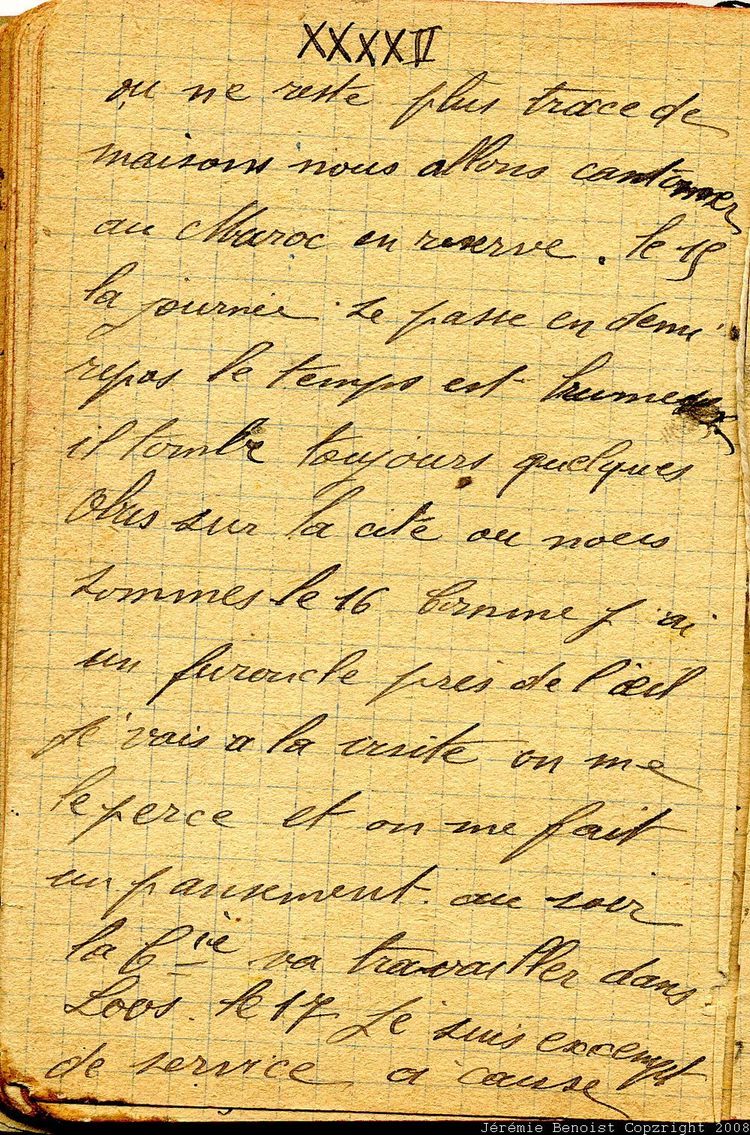 XXXXIV
ou ne reste plus trace de
maisons nous allons cantonner
au Maroc en reserve. le 15
la journée se passe en demi
repos le temps est brumeux
il tombe toujours quelques
Obus sur la cité ou nous
sommes le 16 comme j'ai
un furoncle près de l'œil
je vais a la visite on me
le perce et on me fait
un pansement. au soir
la Cie va travailler dans
Loos. le 17 je suis excempt
de service a cause
Jérémie Benoist Copzright 2008